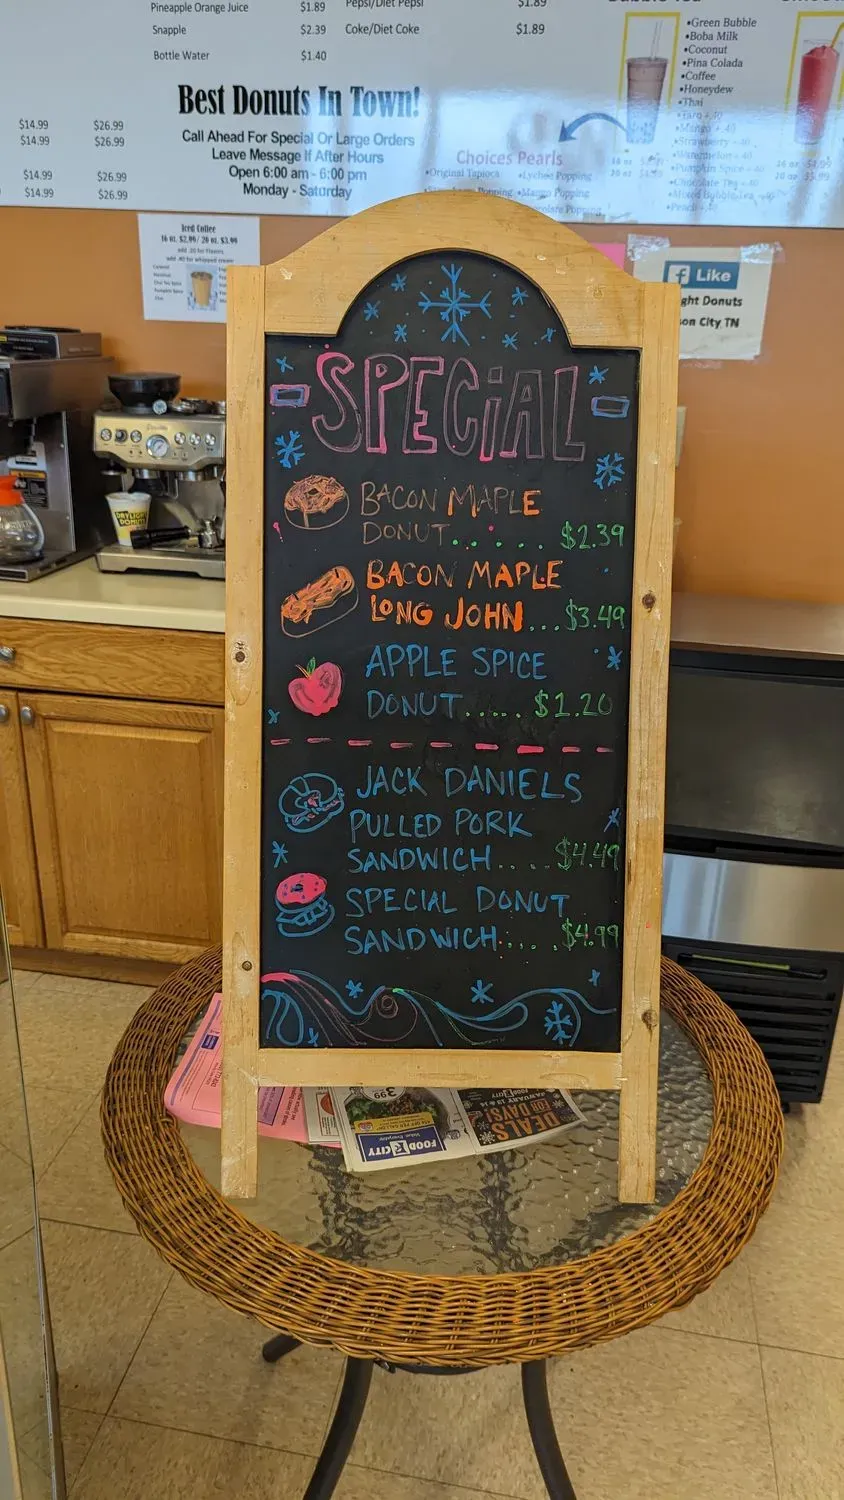 Pineapple Orange Juice $1.89
Snapple $2.39
Bottle Water $1.40
Pepsi/Diet Pepsi $1.89
Coke/Diet Coke $1.89
$14.99 $26.99
$14.99 $26.99
$14.99 $26.99
$14.99 $26.99
Best Donuts In Town!
Call Ahead For Special Or Large Orders
Leave Message If After Hours
Open 6:00 am - 6:00 pm
Monday - Saturday
•Green Bubble
•Boba Milk
•Coconut
•Pina Colada
•Coffee
•Honeydew
•Thai
•Taro +.40
•Mango +.40
•Strawberry +.40
•Watermelon +.40
•Pumpkin Spice +.40
Choices Pearls
•Original Tapioca •Lychee Popping
Popping •Mango Popping
Popping
Iced Coffee
16 oz. $2.99/ 20 oz. $3.99
add .40 for whipped cream
f Like
ght Donuts
on City, TN
DAYLIGHT
DONUTS
SPECiAL
BACON MAPLE
DONUT...... $2.39
BACON MAPLE
LONG JOHN...$3.49
APPLE SPICE
DONUT..... $1.20
JACK DANIELS
PULLED PORK
SANDWICH.... $4.49
SPECIAL DONUT
SANDWICH.... $4.99
3.99
FOOD CITY
FOOD CITY
DEALS
FOR DAYS!